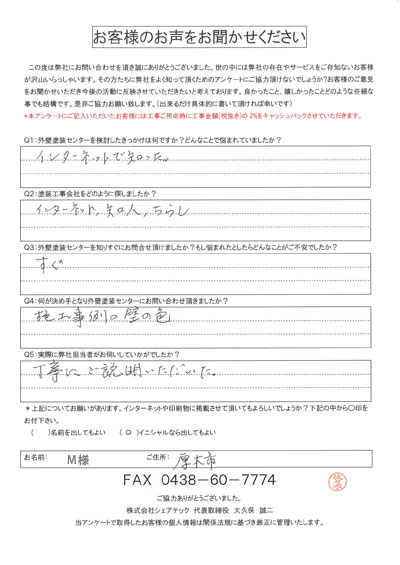 お客様のお声をお聞かせください
この度は弊社にお問い合わせを頂き誠にありがとうございました。世の中には弊社の存在やサービスをご存知ないお客様
が沢山いらっしゃいます。その方たちに弊社をよく知って頂くためのアンケートにご協力頂けないでしょうか?お客様のご意見
をお聞かせいただき今後の活動に反映させていただきたいと考えております。良かったこと、嬉しかったことどのような些細な
事でも結構です。是非ご協力お願い致します。(出来るだけ具体的に書いて頂ければ幸いです)
*本アンケートにご記入いただいたお客様には工事ご用命時に工事金額(税抜き)の2%をキャッシュバックさせていただきます。
Q1:外壁塗装センターを検討したきっかけは何ですか?どんなことで悩まれていましたか?
インターネットで知った。
Q2:塗装工事会社をどのように探しましたか?
インターネット、知人、ちらし
Q3:外壁塗装センターを知りすぐにお問合せ頂けましたか?もし悩まれたとしたらどんなことがご不安でしたか?
すぐ
Q4:何が決め手となり外壁塗装センターにお問い合わせ頂きましたか?
施工事例の壁の色
Q5:実際に弊社担当者がお伺いしていかがでしたか?
丁寧にご説明いただいた。
*上記についてお願いがあります。インターネットや印刷物に掲載させて頂いてもよろしいでしょうか?下記の中から〇印を
お付下さい。
( )名前を出してもよい (○)イニシャルなら出してもよい
お名前: M様 ご住所: 厚木市
FAX 0438-60-7774
ご協力ありがとうございました。
株式会社シェアテック 代表取締役 大久保 誠二
当アンケートで取得したお客様の個人情報は関係法規に基づき厳正に管理いたします。